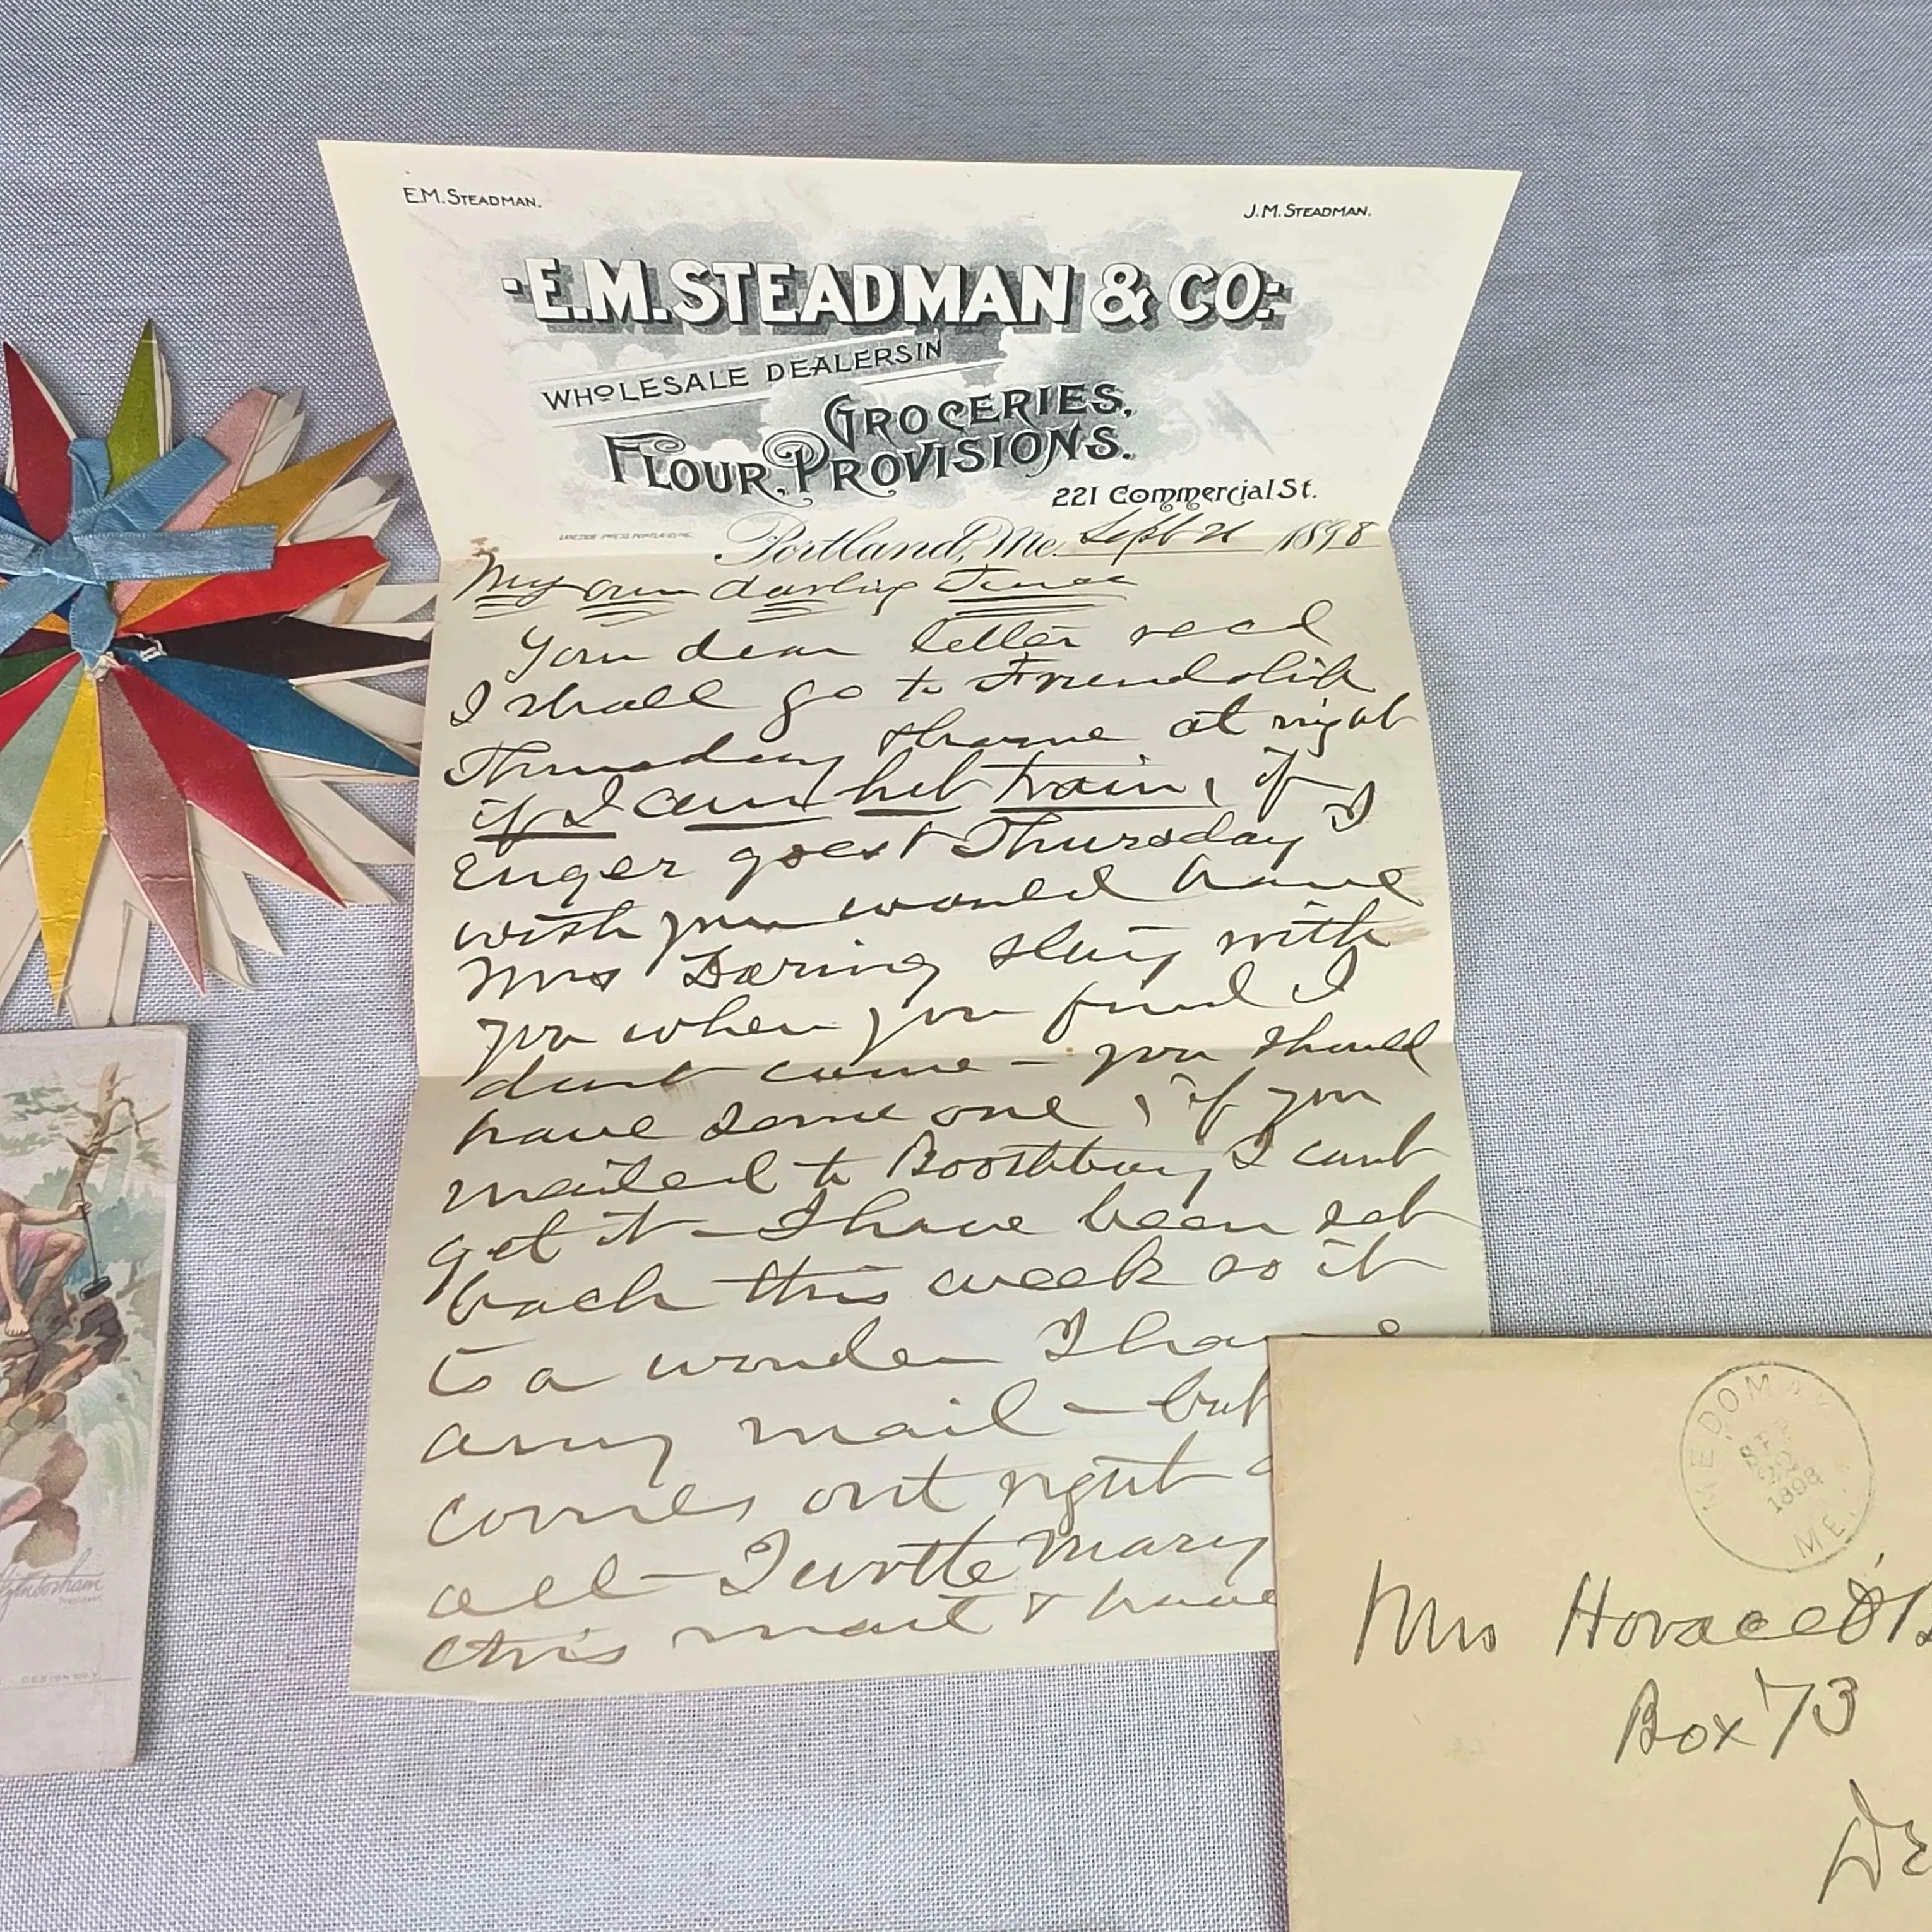 E.M. STEADMAN.
J.M. STEADMAN.
E.M. STEADMAN & CO.
WHOLESALE DEALERS IN
GROCERIES,
FLOUR, PROVISIONS.
221 Commercial St.
LAKESIDE PRESS PORTLAND, ME.
Portland, Me. Sept 21 1898
My own darling
Your dear letter recd
I shall go to Friendship
Thursday & home at night
if I can get train, if
Enger goes Thursday I
wish you would have
Mrs Daring stay with
you when you find I
dont come - you should
have some one, if you
mailed to Boothbay I cant
get it - I have been set
back this week so it
is a wonder I have
any mail - but
comes out right
all - I wrote Mary
this mail & have
MEDOMA
SEP
22
1898
ME.
Mrs Horace
Box 73
DESIGN